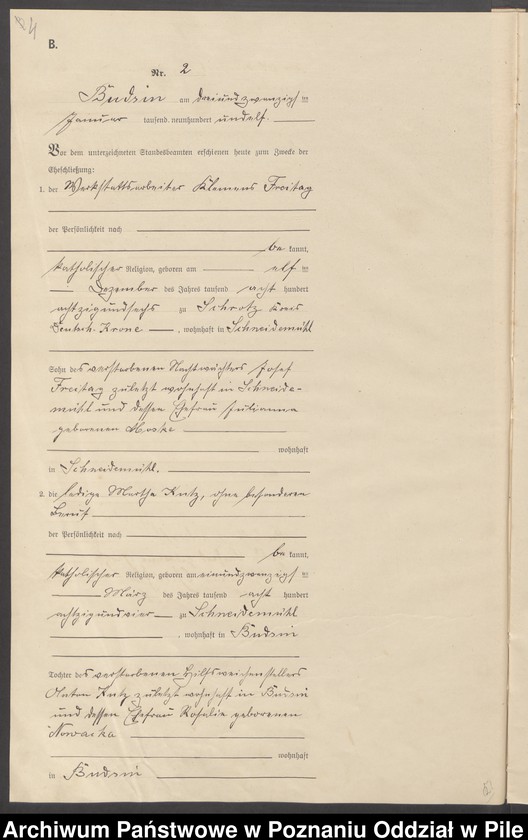 B.
Nr. 2
Budsin am dreiundzwanzigsten
Januar tausend neunhundert und elf.
Vor dem unterzeichneten Standesbeamten erschienen heute zum Zwecke der
Eheschließung:
1. der Werkstattsarbeiter Klemens Freitag
der Persönlichkeit nach
be kannt,
katholischer Religion, geboren am elf ten
Dezember des Jahres tausend acht hundert
achtzigundsechs zu Schrotz Kreis
Deutsch-Krone, wohnhaft in Schneidemühl
Sohn des verstorbenen Nachtwächters Josef
Freitag zuletzt wohnhaft in Schneide-
mühl und dessen Ehefrau Julianna
geborenen
wohnhaft
in Schneidemühl.
2. die ledige Martha Kutz, ohne besonderen
Beruf
der Persönlichkeit nach
be kannt,
katholischer Religion, geboren am einundzwanzigsten
März des Jahres tausend acht hundert
achtzigundvier zu Schneidemühl
, wohnhaft in Budsin
Tochter des verstorbenen Hilfsweichenstellers
Anton Kutz zuletzt wohnhaft in Budsin
und dessen Ehefrau Rosalie geborenen
Nowacka
wohnhaft
in Budsin
Archiwum Państwowe w Poznaniu Oddział w Pile